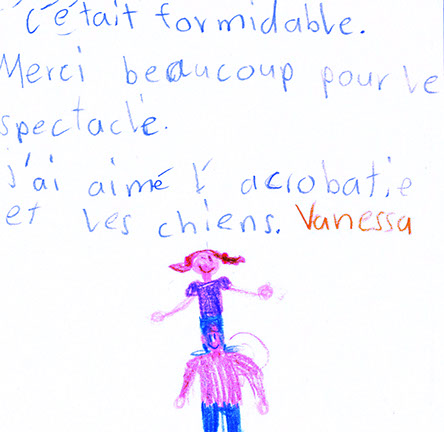 c'était formidable.
Merci beaucoup pour le
spectacle.
J'ai aimé l'acrobatie
et les chiens. Vanessa